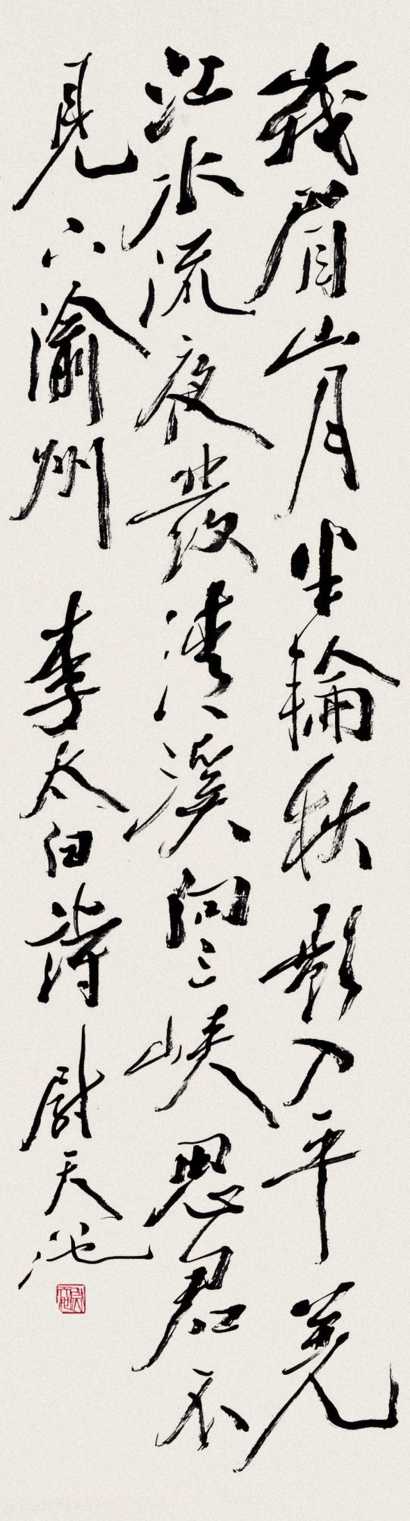 峩眉山月半輪秋影入平羌
江水流夜發清溪向三峽思君不
見下渝州 李太白詩 尉天池